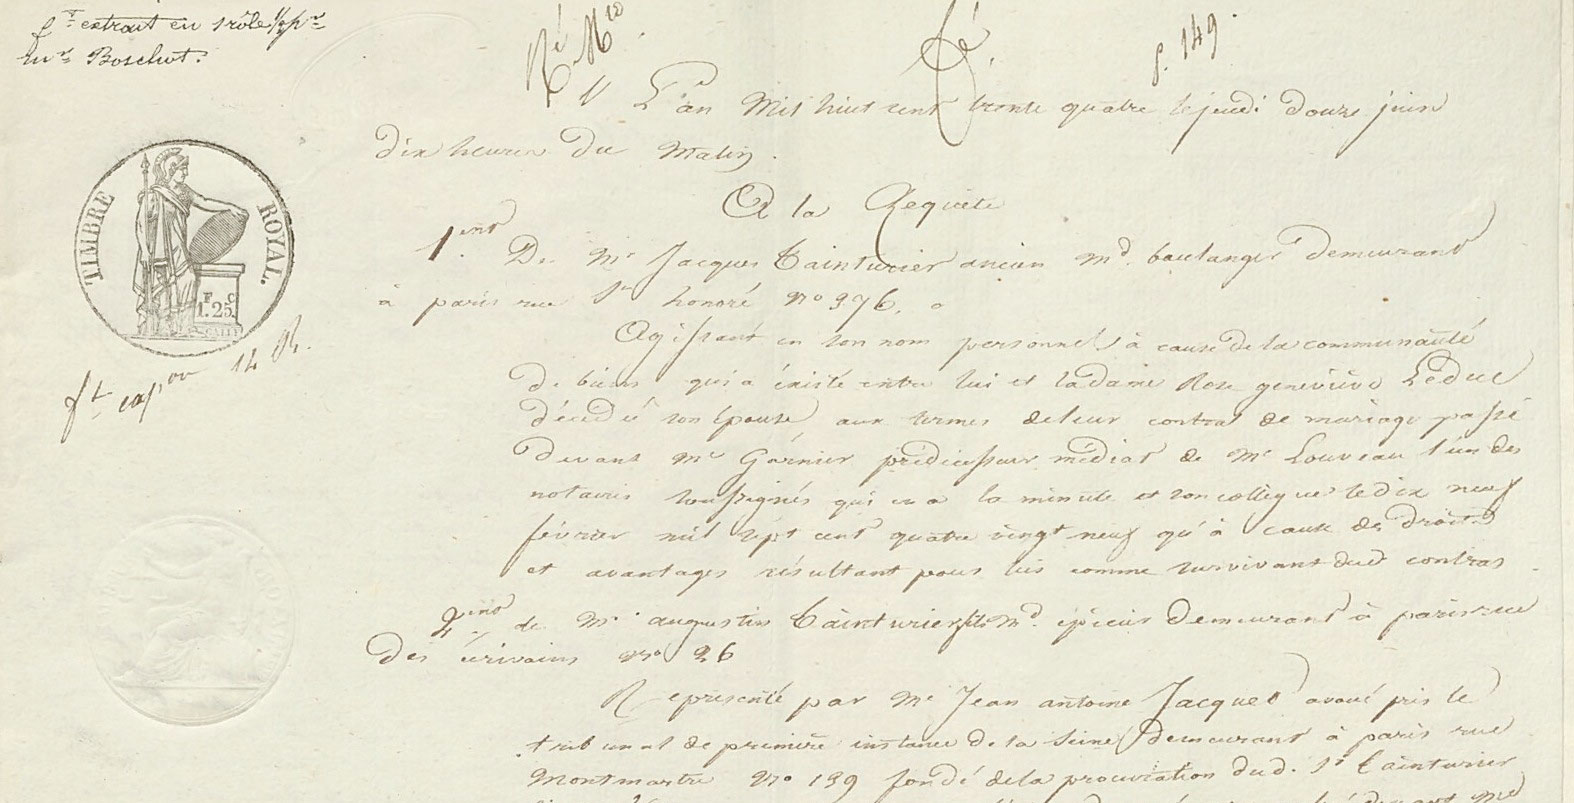 ft extrait en 1 rôle 1/2 pr
mr Boschut.
Ré Mte
p. 149.
L'an Mil huit cent trente quatre le jeudi douze juin
dix heures du Matin.
A la Requête
TIMBRE ROYAL.
F C
1.25.
1.ent De Mr Jacques Tainturier ancien Md. boulanger demeurant
à paris rue St honoré no 376.
Agissant en son nom personnel à cause de la communauté
de biens qui a éxisté entre lui et la dame Rose geneviève Leduc
décédée son épouse aux termes de leur contrat de mariage passé
devant Me Garnier prédécesseur médiat de Me Louveau l'un des
notaires soussignés qui en a la minute et son collègue le dix neuf
février mil sept cent quatre vingt neuf qu'à cause des droits
et avantages résultant pour lui comme survivant dud contrat
2.ent de Mr. augustin Tainturier fils Md. épicier demeurant à paris rue
des écrivains no 26
Représenté par Me Jean antoine Jacquet avoué près le
tribunal de première instance de la Seine demeurant à paris rue
Montmartre No 139 fondé de la procuration dud. Sr tainturier